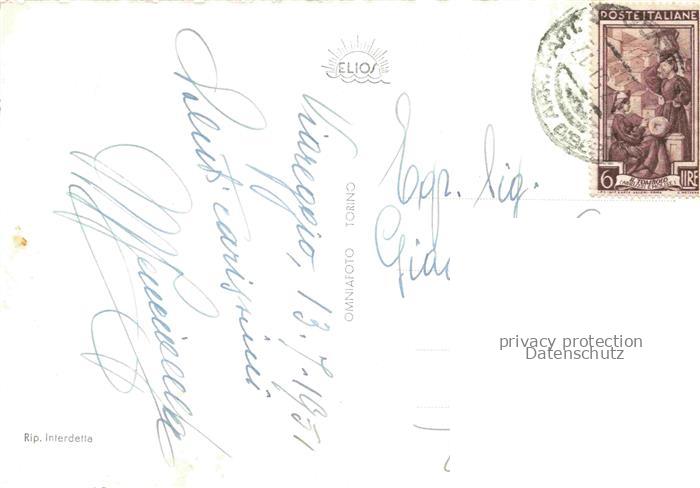 ELIOS
POSTE ITALIANE
6 LIRE
IL TOMBOLO
Viareggio, 13.7.1951
Saluti carissimi
OMNIAFOTO TORINO
Egr. Sig.
Gia
privacy protection
Datenschutz
Rip. Interdetta